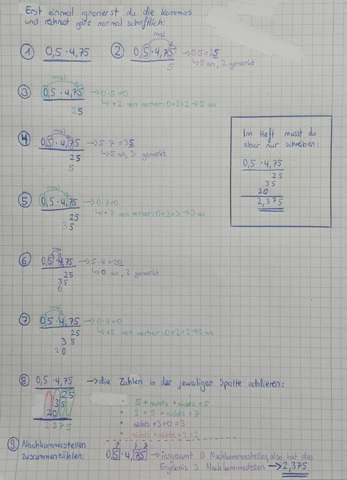 Erst einmal ignorierst du die Kommas
und rechnet ganz normal schriftlich:
① 0,5 · 4,75
② 0,5 · 4,75 → 5·5=25
mal
5
→ 5 an, 2 gemerkt
③ 0,5 · 4,75 → 0·5=0
mal
25
→ +2 von vorher: 0+2=2 → 2 an
④ 0,5 · 4,75 → 5·7=35
mal
25
5
→ 5 an, 3 gemerkt
⑤ 0,5 · 4,75 → 0·7=0
25
35
→ +3 von vorher: 0+3=3 → 3 an
⑥ 0,5 · 4,75 → 5·4=20
25
35
0
→ 0 an, 2 gemerkt
⑦ 0,5 · 4,75 → 0·4=0
25
35
20
→ +2 von vorher: 0+2=2 → 2 an
Im Heft musst du
aber nur schreiben:
0,5 · 4,75
25
35
20
2,375
⑧ 0,5 · 4,75 → die Zahlen in der jeweiligen Spalte addieren:
25
35
20
2375
5 + nichts + nichts = 5
2 + 5 + nichts = 7
nichts + 3 + 0 = 3
nichts + nichts + 2 = 2
⑨ Nachkommastellen
zusammenzählen:
0,5 · 4,75 → insgesamt 3 Nachkommastellen, also hat das
Ergebnis 3 Nachkommastellen → 2,375